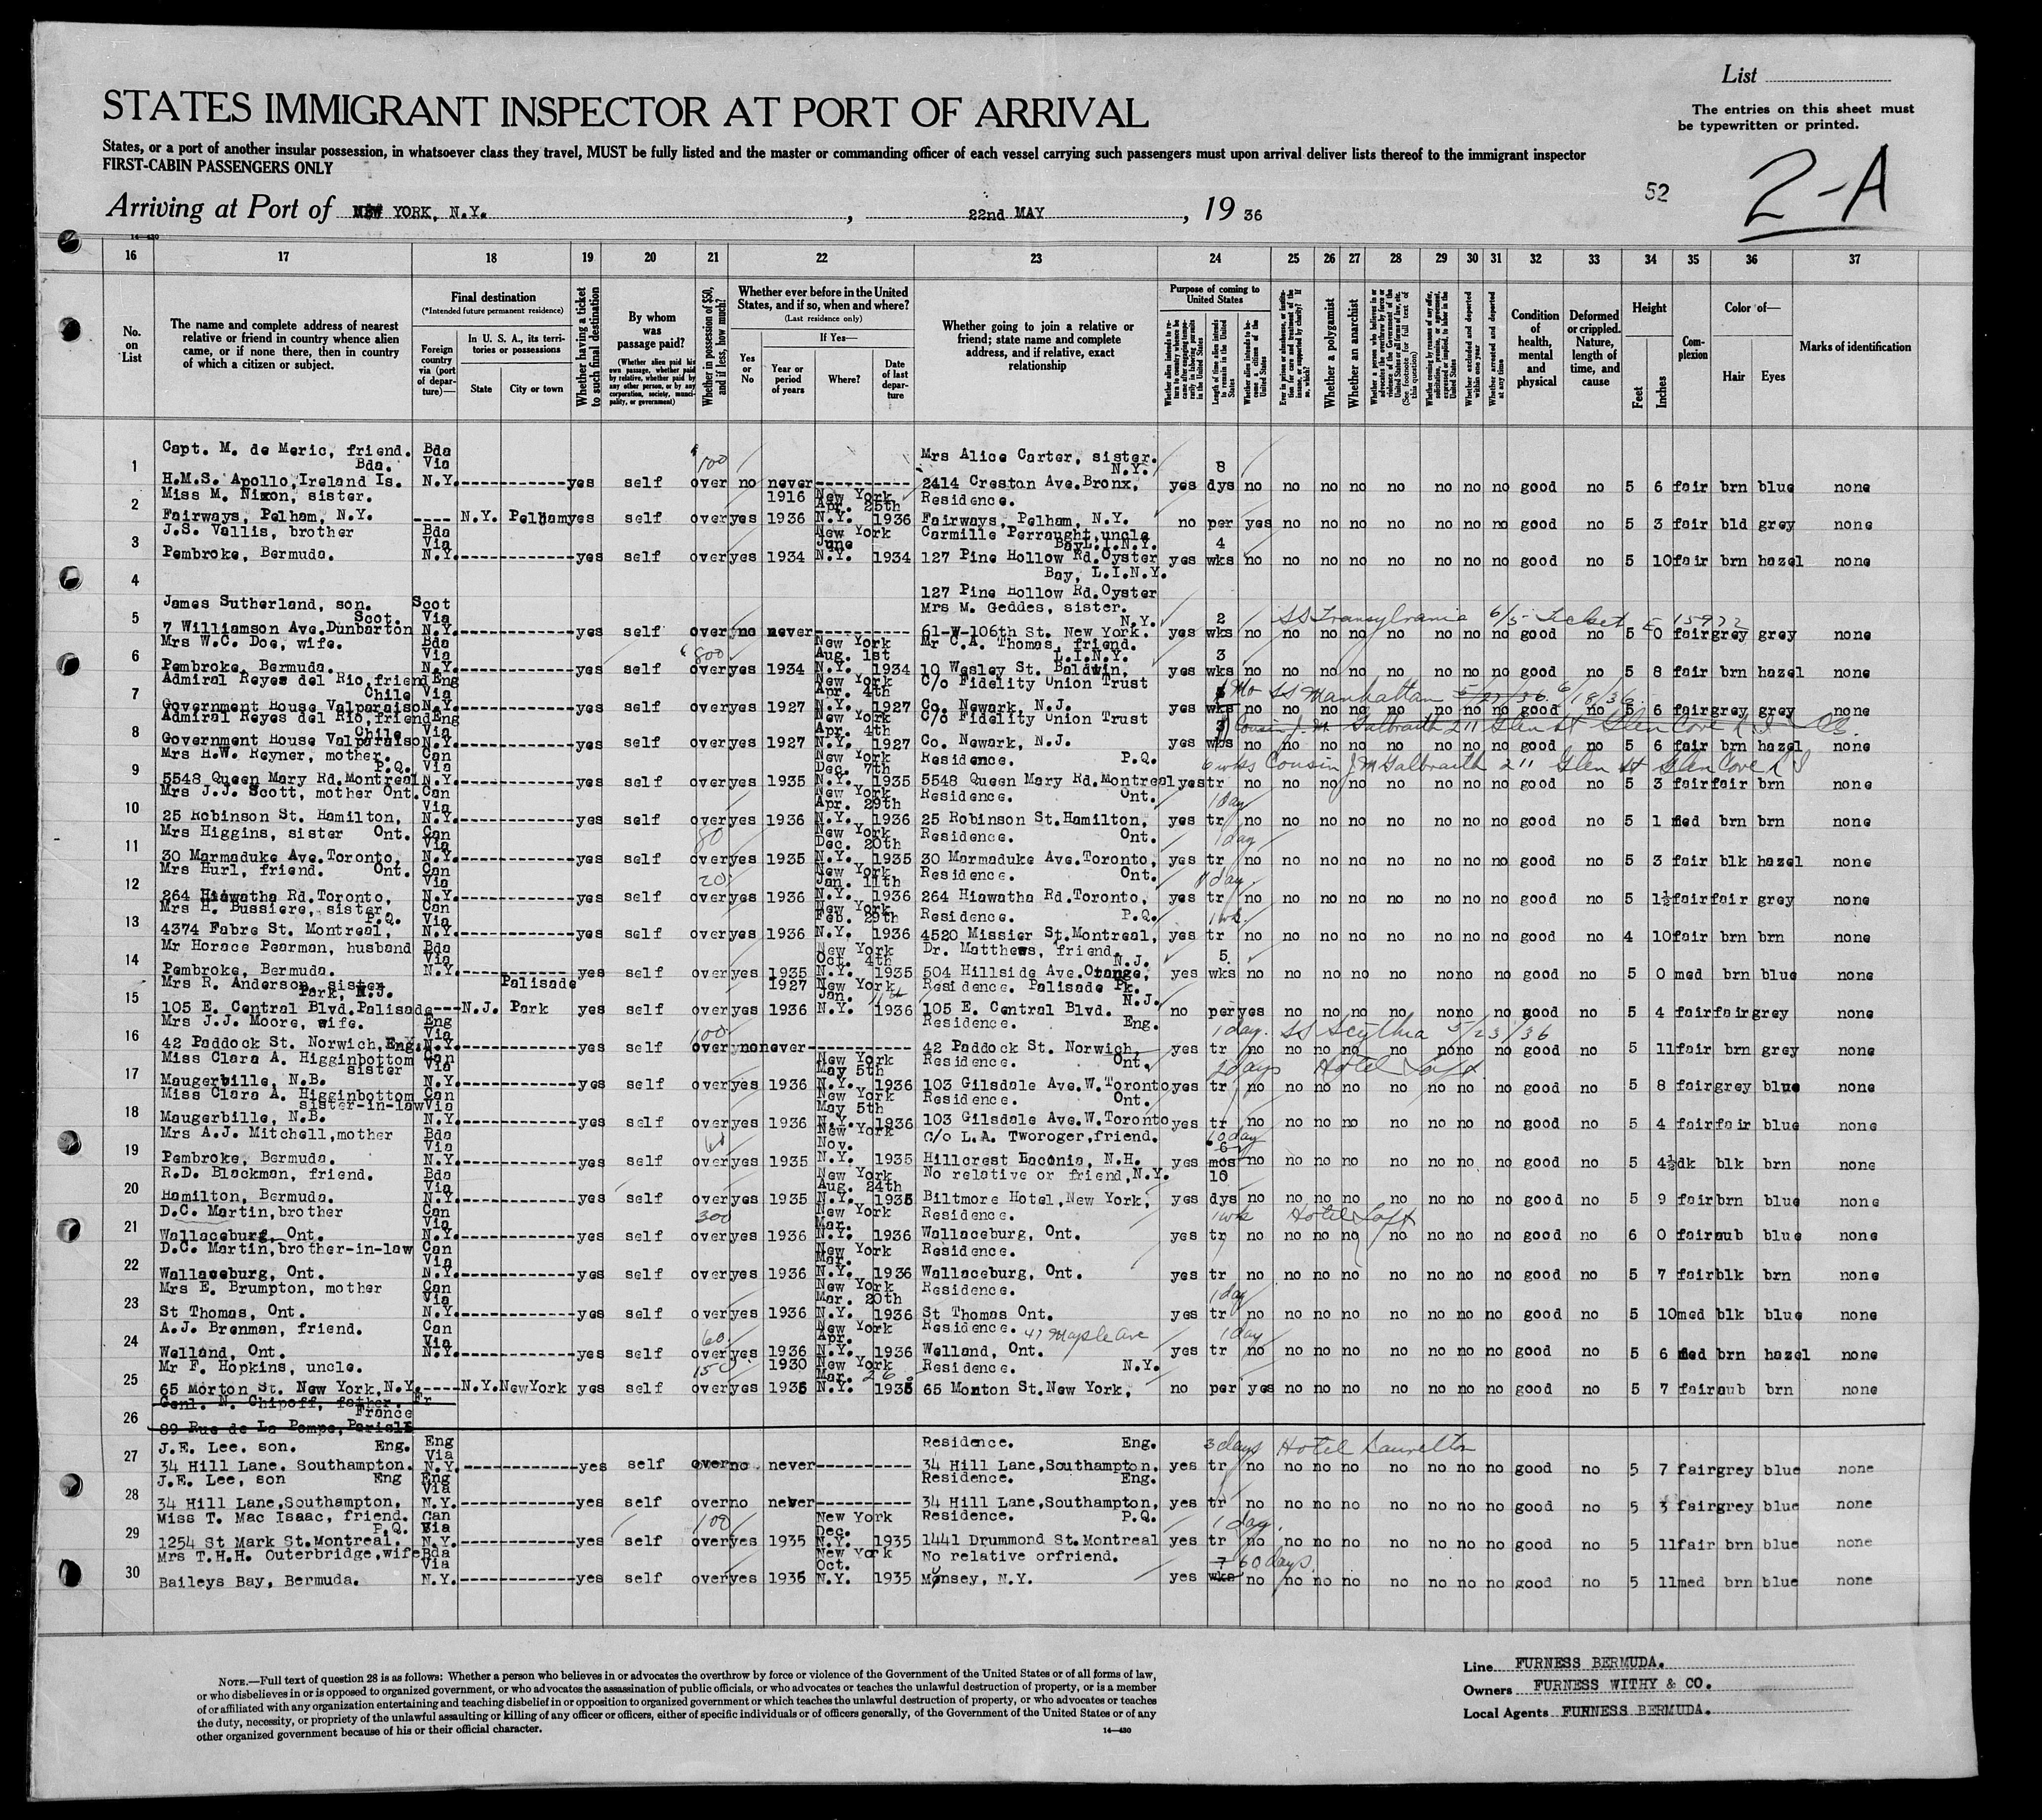 List
STATES IMMIGRANT INSPECTOR AT PORT OF ARRIVAL
The entries on this sheet must
be typewritten or printed.
States, or a port of another insular possession, in whatsoever class they travel, MUST be fully listed and the master or commanding officer of each vessel carrying such passengers must upon arrival deliver lists thereof to the immigrant inspector
FIRST-CABIN PASSENGERS ONLY
52
2-A
Arriving at Port of NEW YORK, N.Y., 22nd MAY, 19 36
14—430
16 17 18 19 20 21 22 23 24 25 26 27 28 29 30 31 32 33 34 35 36 37
No. on List
The name and complete address of nearest relative or friend in country whence alien came, or if none there, then in country of which a citizen or subject.
Final destination
(*Intended future permanent residence)
Foreign country via (port of departure)—
In U. S. A., its territories or possessions
State
City or town
Whether having a ticket to such final destination
By whom was passage paid?
(Whether alien paid his own passage, whether paid by relative, whether paid by any other person, or by any corporation, society, municipality, or government)
Whether in possession of $50, and if less, how much?
Whether ever before in the United States, and if so, when and where?
(Last residence only)
Yes or No
If Yes—
Year or period of years
Where?
Date of last departure
Whether going to join a relative or friend; state name and complete address, and if relative, exact relationship
Purpose of coming to United States
Length of time alien intends to remain in the United States
Whether alien intends to become a citizen of the United States
Whether a polygamist
Whether an anarchist
Whether excluded and deported within one year
Whether arrested and deported at any time
Condition of health, mental and physical
Deformed or crippled. Nature, length of time, and cause
Height
Feet
Inches
Complexion
Color of—
Hair
Eyes
Marks of identification
1 Capt. M. de Meric, friend. Bda. H.M.S. Apollo, Ireland Is. Bda Via N.Y. yes self 100 over no never Mrs Alice Carter, sister. N.Y. 2414 Creston Ave. Bronx, yes 8 dys no no no no no no no no good no 5 6 fair brn blue none
2 Miss M. Nixon, sister. Fairways, Pelham, N.Y. ---- N.Y. Pelham yes self over yes 1916 1936 New York Apr. 25th N.Y. 1936 Residence. Fairways, Pelham, N.Y. no per yes no no no no no no no good no 5 3 fair bld grey none
3 J.S. Vallis, brother Pembroke, Bermuda. Bda Via N.Y. yes self over yes 1934 New York June N.Y. 1934 Carmille Perraught, uncle Bay L.I.N.Y. 127 Pine Hollow Rd. Oyster yes 4 wks no no no no no no no no good no 5 10 fair brn hazel none
4 Bay, L.I.N.Y. 127 Pine Hollow Rd. Oyster
5 James Sutherland, son. Scot. 7 Williamson Ave. Dunbarton Scot Via N.Y. yes self over no never Mrs M. Geddes, sister. N.Y. 61-W-106th St. New York. yes 2 wks no no no no no no no no good no 5 0 fair grey grey none
SS Transylvania 6/5 Ticket E 15972
6 Mrs W.C. Doe, wife. Pembroke, Bermuda. Bda Via N.Y. yes self 800 over yes 1934 New York Aug. 1st N.Y. 1934 Mr C.A. Thomas, friend. L.I.N.Y. 10 Wesley St. Baldwin, yes 3 wks no no no no no no no no good no 5 8 fair brn hazel none
7 Admiral Reyes del Rio, friend Chile Government House Valparaiso Eng Via N.Y. yes self over yes 1927 New York Apr. 4th N.Y. 1927 C/o Fidelity Union Trust Co. Newark, N.J. yes wks no no no no no no no no good no 5 6 fair grey grey none
Mo SS Manhattan 6/18/36
8 Admiral Reyes del Rio, friend Chile Government House Valparaiso Eng Via N.Y. yes self over yes 1927 New York Apr. 4th N.Y. 1927 C/o Fidelity Union Trust Co. Newark, N.J. yes 3 wks no no no no no no no no good no 5 6 fair brn hazel none
Cousin J. M. Galbraith 211 Glen St Glen Cove L I
9 Mrs H.W. Reyner, mother. P.Q. 5548 Queen Mary Rd. Montreal Can Via N.Y. yes self over yes 1935 New York Dec. 7th N.Y. 1935 Residence. P.Q. 5548 Queen Mary Rd. Montreal yes tr no no no no no no no no good no 5 3 fair fair brn none
6 wks Cousin J M Galbraith 211 Glen St Glen Cove L I
10 Mrs J.J. Scott, mother Ont. 25 Robinson St. Hamilton, Can Via N.Y. yes self over yes 1936 New York Apr. 29th N.Y. 1936 Residence. Ont. 25 Robinson St. Hamilton, yes 1 day tr no no no no no no no no good no 5 1 med brn brn none
11 Mrs Higgins, sister Ont. 30 Marmaduke Ave. Toronto, Can Via N.Y. yes self 80 over yes 1935 New York Dec. 20th N.Y. 1935 Residence. Ont. 30 Marmaduke Ave. Toronto, yes 1 day tr no no no no no no no no good no 5 3 fair blk hazel none
12 Mrs Hurl, friend. Ont. 264 Hiawatha Rd. Toronto, Can Via N.Y. yes self 20 over yes 1936 New York Jan. 11th N.Y. 1936 Residence. Ont. 264 Hiawatha Rd. Toronto, yes 1 day tr no no no no no no no no good no 5 1½ fair fair grey none
13 Mrs H. Bussiere, sister. P.Q. 4374 Fabre St. Montreal, Can Via N.Y. yes self over yes 1936 New York Feb. 29th N.Y. 1936 Residence. P.Q. 4520 Missier St. Montreal, yes 1 wk. tr no no no no no no no no good no 4 10 fair brn brn none
14 Mr Horace Pearman, husband Pembroke, Bermuda. Bda Via N.Y. yes self over yes 1935 New York Oct. 4th N.Y. 1935 Dr. Matthews, friend. N.J. 504 Hillside Ave. Orange, yes 5 wks no no no no no no no no good no 5 0 med brn blue none
15 Mrs R. Anderson, sister Park, N.J. 105 E. Central Blvd. Palisade ---- N.J. Palisade Park yes self over yes 1927 1936 New York Jan. 11th N.Y. 1936 Residence. Palisade Pk. N.J. 105 E. Central Blvd. no per yes no no no no no no no good no 5 4 fair fair grey none
16 Mrs J.J. Moore, wife. 42 Paddock St. Norwich, Eng. Eng Via N.Y. yes self 100 over no never Residence. Eng. 42 Paddock St. Norwich, yes 1 day. tr no no no no no no no no good no 5 11 fair brn grey none
SS Scythia 5/23/36
17 Miss Clara A. Higginbottom sister Maugerbille, N.B. Can Via N.Y. yes self over yes 1936 New York May 5th N.Y. 1936 Residence. Ont. 103 Gilsdale Ave. W. Toronto yes 2 days tr no no no no no no no no good no 5 8 fair grey blue none
Hotel Taft
18 Miss Clara A. Higginbottom sister-in-law Maugerbille, N.B. Can Via N.Y. yes self over yes 1936 New York May 5th N.Y. 1936 Residence. Ont. 103 Gilsdale Ave. W. Toronto yes tr no no no no no no no no good no 5 4 fair fair blue none
19 Mrs A.J. Mitchell, mother Pembroke, Bermuda. Bda Via N.Y. yes self over yes 1935 New York Nov. N.Y. 1935 C/o L.A. Tworoger, friend. Hillcrest Laconia, N.H. yes 6 mos no no no no no no no no good no 5 4½ dk blk brn none
20 R.D. Blackman, friend. Hamilton, Bermuda. Bda Via N.Y. yes self over yes 1935 New York Aug. 24th N.Y. 1935 No relative or friend, N.Y. Biltmore Hotel, New York, yes 10 dys no no no no no no no no good no 5 9 fair brn blue none
21 D.C. Martin, brother Wallaceburg, Ont. Can Via N.Y. yes self 300 over yes 1936 New York Mar. N.Y. 1936 Residence. Wallaceburg, Ont. yes 1 wk tr no no no no no no no no good no 6 0 fair aub blue none
Hotel Taft
22 D.C. Martin, brother-in-law Wallaceburg, Ont. Can Via N.Y. yes self over yes 1936 New York Mar. N.Y. 1936 Residence. Wallaceburg, Ont. yes tr no no no no no no no no good no 5 7 fair blk brn none
23 Mrs E. Brumpton, mother St Thomas, Ont. Can Via N.Y. yes self over yes 1936 New York Mar. 20th N.Y. 1936 Residence. St Thomas Ont. yes 1 day tr no no no no no no no no good no 5 10 med blk blue none
24 A.J. Brenman, friend. Welland, Ont. Can Via N.Y. yes self 60 over yes 1936 New York Apr. N.Y. 1936 Residence. 47 Maple Ave Welland, Ont. yes 1 day tr no no no no no no no no good no 5 6 med brn hazel none
25 Mr F. Hopkins, uncle. 65 Morton St. New York, N.Y. ---- N.Y. New York yes self 150 over yes 1930 1935 New York Mar. 26 N.Y. 1935 Residence. N.Y. 65 Monton St. New York, no per yes no no no no no no no good no 5 7 fair aub brn none
26 Genl. N. Chipoff, father. Fr France 89 Rue de La Pompe, Paris
27 J.E. Lee, son. Eng. 34 Hill Lane. Southampton. Eng Via N.Y. yes self over no never Residence. Eng. 34 Hill Lane, Southampton, yes 3 days tr no no no no no no no no good no 5 7 fair grey blue none
Hotel Laurelton
28 J.E. Lee, son Eng 34 Hill Lane, Southampton, Eng Via N.Y. yes self over no never Residence. Eng. 34 Hill Lane, Southampton, yes tr no no no no no no no no good no 5 3 fair grey blue none
29 Miss T. Mac Isaac, friend. P.Q. 1254 St Mark St. Montreal. Can Via N.Y. yes self 100 over yes 1935 New York Dec. N.Y. 1935 Residence. P.Q. 1441 Drummond St. Montreal yes 1 day. tr no no no no no no no no good no 5 11 fair brn blue none
30 Mrs T.H.H. Outerbridge, wife Baileys Bay, Bermuda. Bda Via N.Y. yes self over yes 1935 New York Oct. N.Y. 1935 No relative orfriend. Monsey, N.Y. yes 7 wks 60 days no no no no no no no no good no 5 11 med brn blue none
NOTE.—Full text of question 28 is as follows: Whether a person who believes in or advocates the overthrow by force or violence of the Government of the United States or of all forms of law,
or who disbelieves in or is opposed to organized government, or who advocates the assassination of public officials, or who advocates or teaches the unlawful destruction of property, or is a member
of or affiliated with any organization entertaining and teaching disbelief in or opposition to organized government or which teaches the unlawful destruction of property, or who advocates or teaches
the duty, necessity, or propriety of the unlawful assaulting or killing of any officer or officers, either of specific individuals or of officers generally, of the Government of the United States or of any
other organized government because of his or their official character.
14—430
Line FURNESS BERMUDA.
Owners FURNESS WITHY & CO.
Local Agents FURNESS BERMUDA.